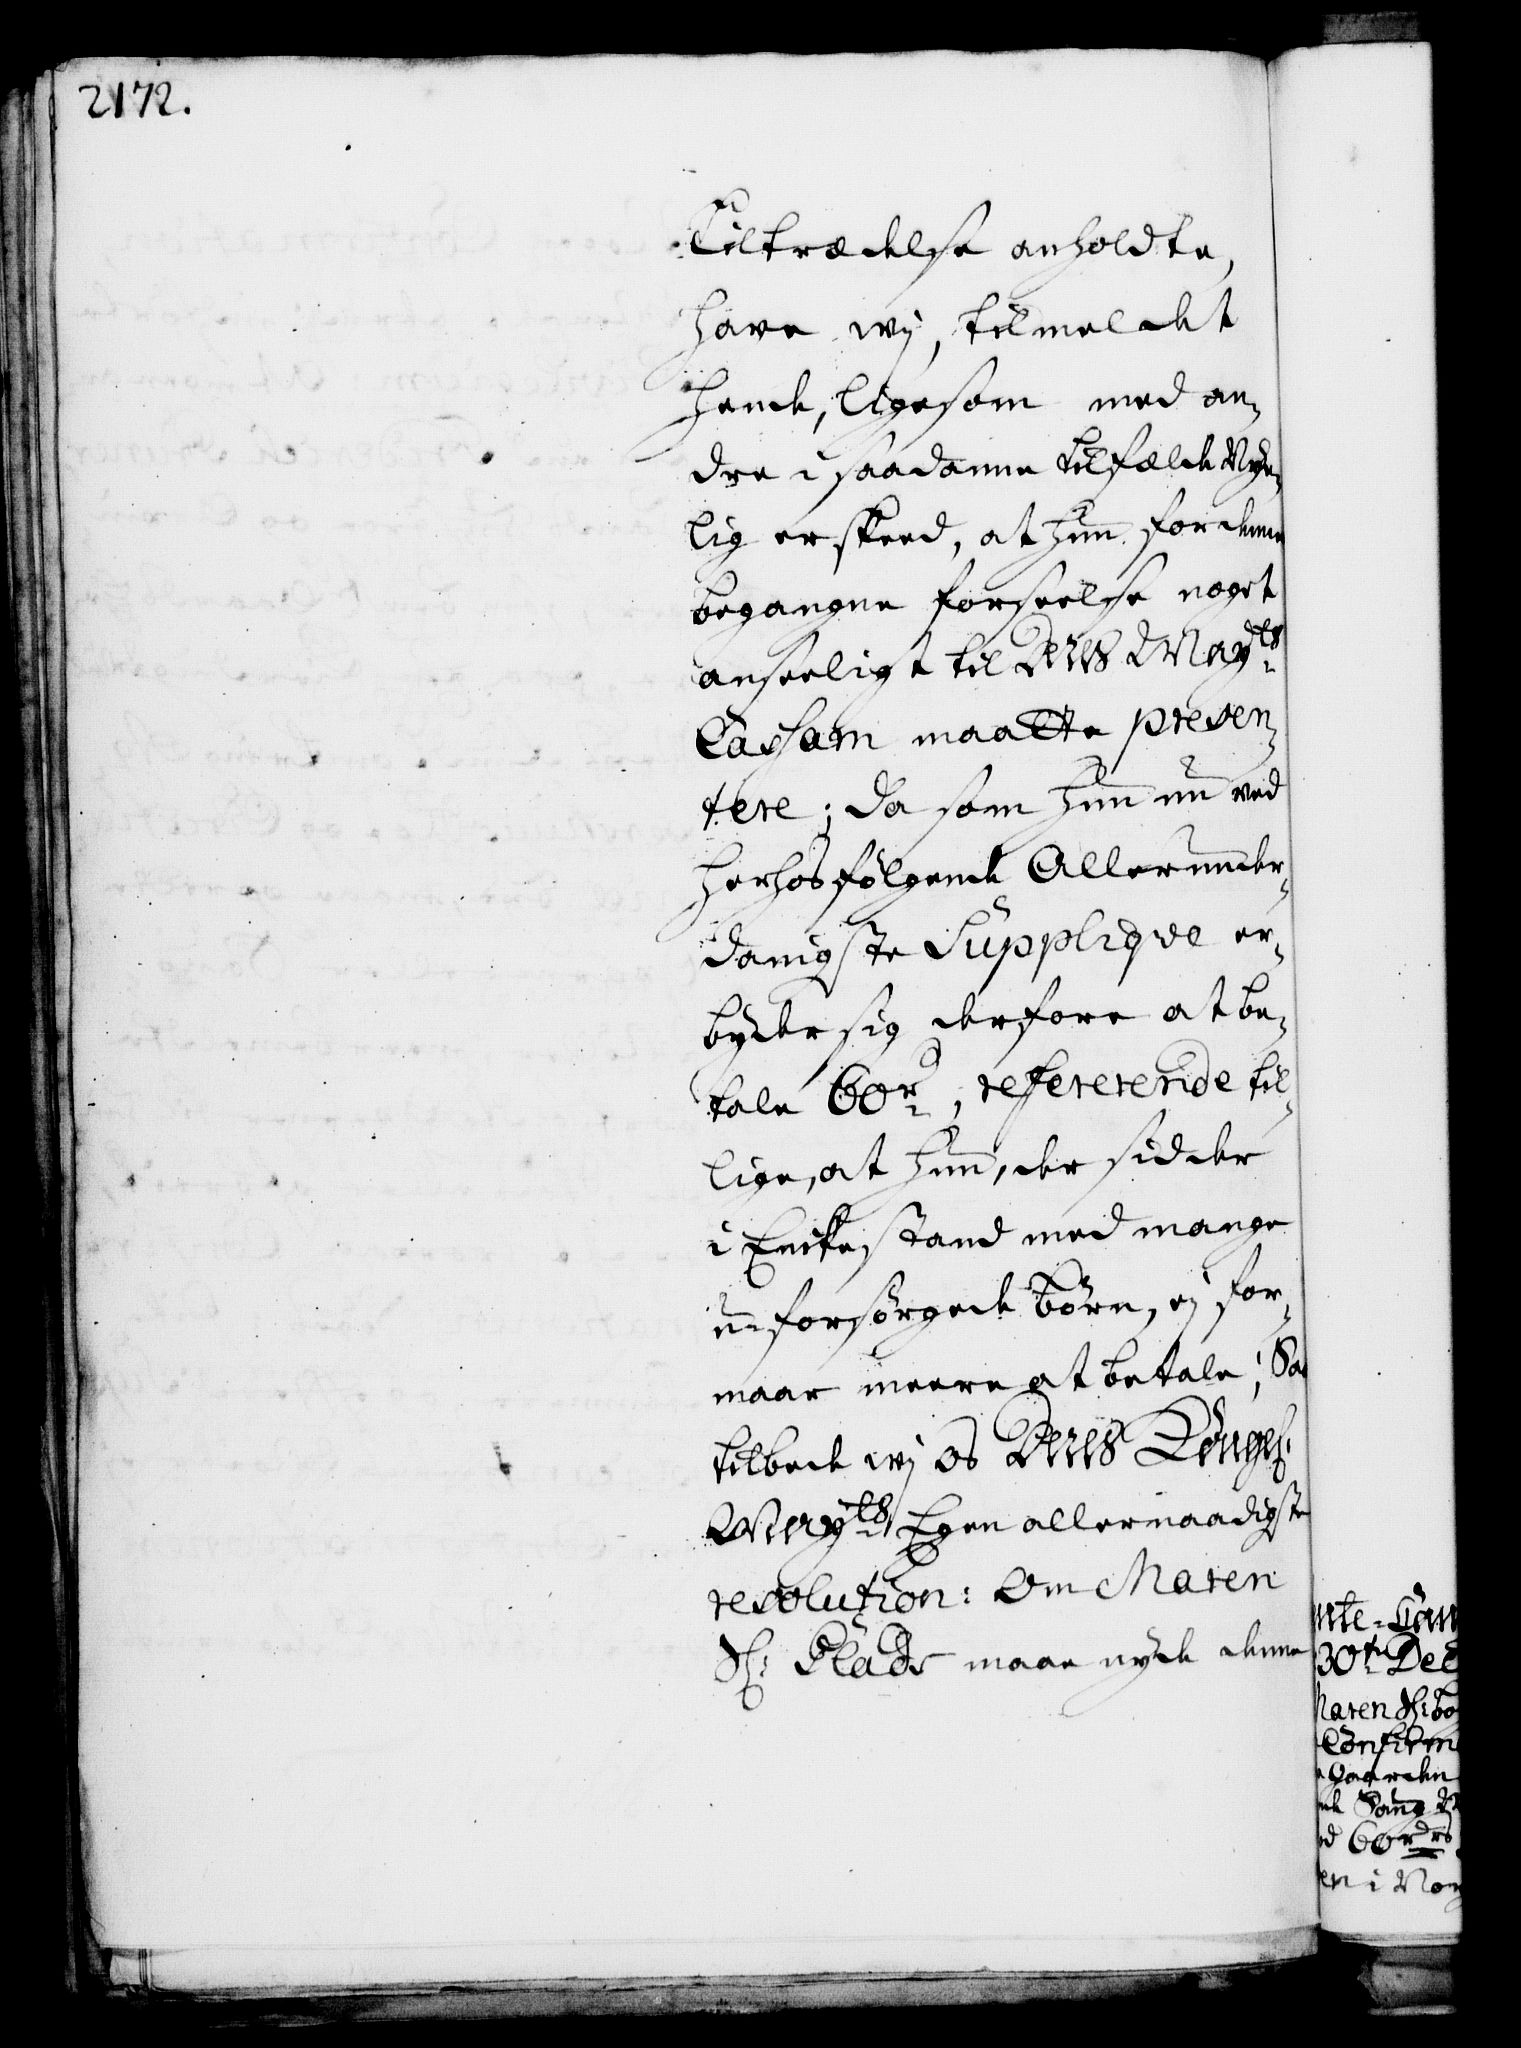 2172.
Tiltrædelse anholdte,
have wij, tilmeldt
hende, ligesom med an,
dre i saadanne tilfælde Nye,
lig er skeed, at hun for denne
begangne forseelse noget
anseeligt til Deris May:ts
Cassam maatte presen,
tere; Da som hun nu ved
herhos følgende Allerunder,
danigste Supplique er,
byder sig derfore at be,
tale 60 rd, refererende til,
lige, at hun, der sidder
i Enckestand med mange
uforsørgede børn, ej for,
maar meere at betale; Saa
tilbede wj os Deris Kongel:
May:ts Egen allernaadigste
resolution: Om Maren
Sl: Clads maae nyde denne
30te Dec
Maren Sl:
Confirm
Gaarden
Sang
60 rdrs
en i Nor